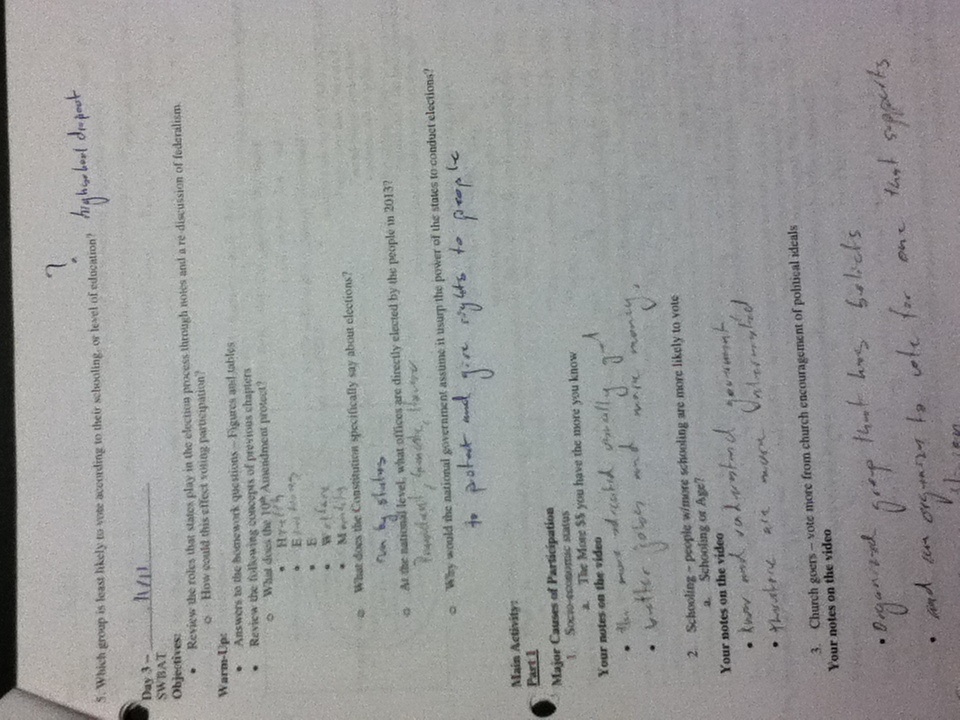 ?
5. Which group is least likely to vote according to their schooling, or level of education? highschool dropout
Day 3 – 11/11
SWBAT
Objectives:
• Review the roles that states play in the election process through notes and a re-discussion of federalism.
o How could this effect voting participation?
Warm-Up:
• Answers to the homework questions – Figures and tables
• Review the following concepts of previous chapters
o What does the 10th Amendment protect?
• Health
• E
• E
• Welfare
• M
o What does the Constitution specifically say about elections?
run by states
o At the national level, what offices are directly elected by the people in 2013?
President, Senate, House
o Why would the national government assume it usurp the power of the states to conduct elections?
to protect and give rights to people
Main Activity:
Part 1
Major Causes of Participation
1. Socio-economic status
a. The More $$ you have the more you know
Your notes on the video
• the more educated usually get
• better jobs and more money.
2. Schooling – people w/more schooling are more likely to vote
a. Schooling or Age?
Your notes on the video
• know and understand government
• therefore are more
3. Church goers – vote more from church encouragement of political ideals
Your notes on the video
• Organized group that has beliefs
• and can organize to vote for one that supports